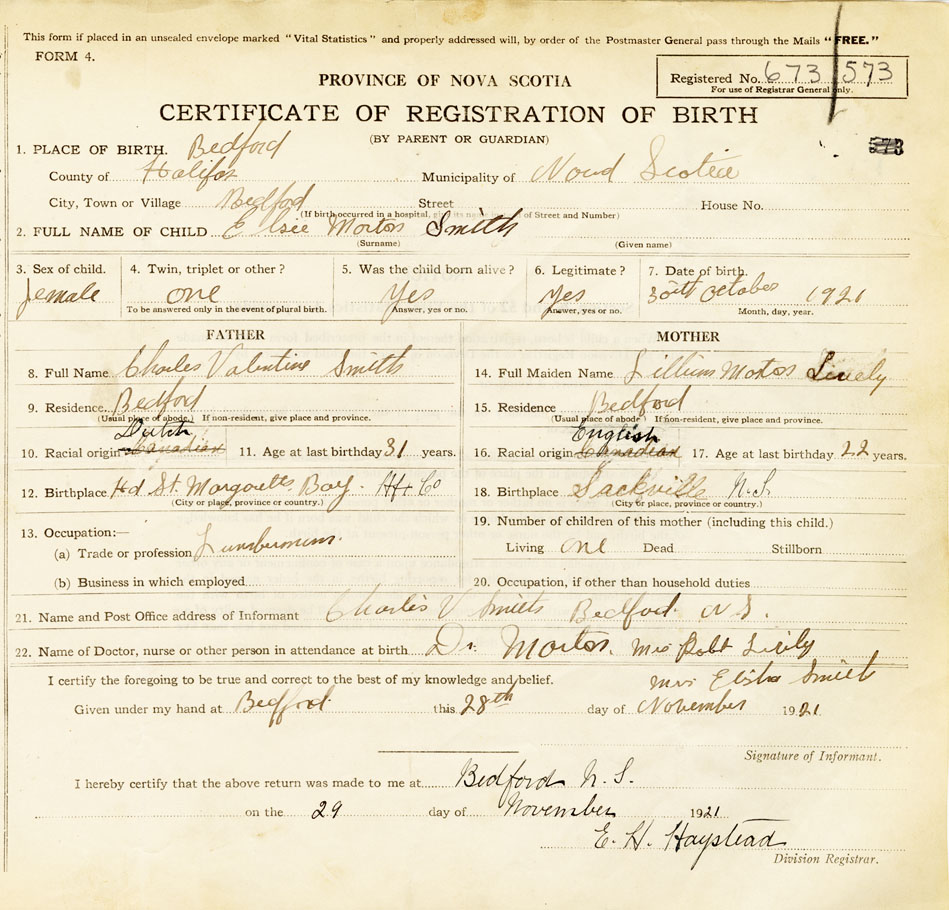 This form if placed in an unsealed envelope marked "Vital Statistics" and properly addressed will, by order of the Postmaster General pass through the Mails "FREE."
FORM 4.
PROVINCE OF NOVA SCOTIA
Registered No. 673 573
For use of Registrar General only.
CERTIFICATE OF REGISTRATION OF BIRTH
(BY PARENT OR GUARDIAN)
573
1. PLACE OF BIRTH. Bedford
County of Halifax Municipality of Nova Scotia
City, Town or Village Bedford Street House No.
(If birth occurred in a hospital, give its name instead of Street and Number)
2. FULL NAME OF CHILD Elsie Morton Smith
(Surname) (Given name)
3. Sex of child. 4. Twin, triplet or other? 5. Was the child born alive? 6. Legitimate? 7. Date of birth.
female one Yes Yes 30th October 1921
To be answered only in the event of plural birth. Answer, yes or no. Answer, yes or no. Month, day, year.
FATHER MOTHER
8. Full Name Charles Valentine Smith 14. Full Maiden Name Lillian Morton Lively
9. Residence Bedford 15. Residence Bedford
(Usual place of abode.) If non-resident, give place and province. (Usual place of abode) If non-resident, give place and province.
Dutch English
10. Racial origin Canadian 11. Age at last birthday 31 years. 16. Racial origin Canadian 17. Age at last birthday 22 years.
12. Birthplace Hd St. Margaretts Bay. Hfx Co 18. Birthplace Sackville N.S.
(City or place, province or country.) (City or place, province or country.)
19. Number of children of this mother (including this child.)
13. Occupation:—
(a) Trade or profession Living one Dead Stillborn
(b) Business in which employed 20. Occupation, if other than household duties
21. Name and Post Office address of Informant Charles V Smith Bedford N.S.
22. Name of Doctor, nurse or other person in attendance at birth Dr. Morton. Mrs Robt Lively
I certify the foregoing to be true and correct to the best of my knowledge and belief. Mrs Smith
Given under my hand at Bedford this 28th day of November 1921
Signature of Informant.
I hereby certify that the above return was made to me at Bedford N.S.
on the 29 day of November 1921
E. H. Haystead
Division Registrar.